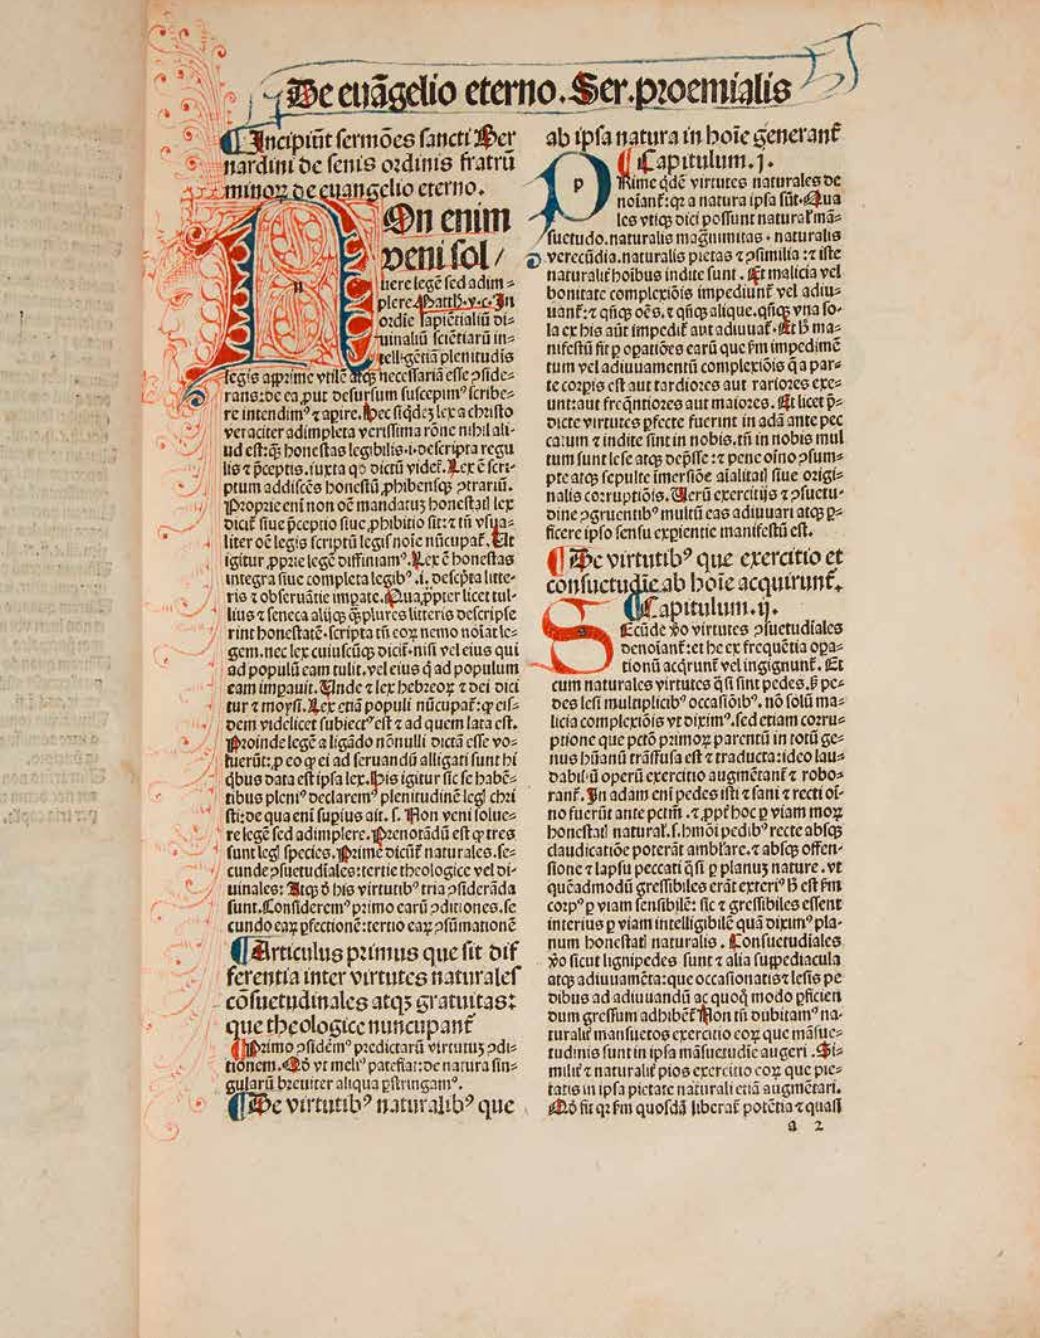 De euāgelio eterno. Ser. proemialis
¶ Incipiūt sermōes sancti Ber
nardini de senis ordinis fratrū
minoꝝ de euangelio eterno.
NOn enim
veni sol/
uere legē sed adim⸗
plere. Matth. v. c. In
ordīe sapiētialiū di⸗
uinaliū sciētiarū in⸗
telligētiā plenitudis
legis apprime vtilē atqꝫ necessariā esse ↄside⸗
rans: de ea, put desursum suscepimꝰ scribe⸗
re intendimꝰ ⁊ apire. Hec siqdeꝫ lex a christo
veraciter adimpleta verissima rōne nihil ali⸗
ud est: qꝫ honestas legibilis .i. descripta regu
lis ⁊ p̄ceptis. iuxta qđ dictū videt᷑. Lex ē scri⸗
ptum addiscēs honestū ꝓhibensqꝫ ↄtrariū.
Proprie eni non oē mandatuꝫ honestatꝭ lex
dicit᷑ siue p̄ceptio siue ꝓhibitio sit: ⁊ tn̄ vsua⸗
liter oē legis scriptū legis noīe nūcupat᷑. Ut
igitur ꝓprie legē diffiniamꝰ. Lex ē honestas
integra siue completa legibꝰ .i. descp̄ta litte⸗
ris ⁊ obseruātie impate. Qua ꝓpter licet tul⸗
lius ⁊ seneca alijqꝫ qꝫplures litteris descripse
rint honestatē. scripta tn̄ eoꝝ nemo noīat le⸗
gem. nec lex cuiuscūqꝫ dicit᷑. nisi vel eius qui
ad populū eam tulit. vel eius q̄ ad populum
eam impauit. Unde ⁊ lex hebreoꝝ ⁊ dei dici
tur ⁊ moysi. Lex etiā populi nūcupat᷑: ꝙ eis⸗
dem videlicet subiectꝰ est ⁊ ad quem lata est.
Proinde legē a ligādo nōnulli dictā esse vo⸗
luerūt: ꝑ eo ꝙ ei ad seruandū alligati sunt hi
q̄bus data est ipsa lex. His igitur sic se habē⸗
tibus pleniꝰ declaremꝰ plenitudinē legꝭ chri
sti: de qua eni supius ait. s. Non veni solue⸗
re legē sed adimplere. Prenotādū est ꝙ tres
sunt legꝭ species. Prime dicūt᷑ naturales. se⸗
cunde ↄsuetudīales: tertie theologice vel di⸗
uinales: Atqꝫ ð his virtutibꝰ tria ↄsiderāda
sunt. Consideremꝰ primo earū ↄditiones. se
cundo eaꝝ ꝑfectionē: tertio eaꝝ ↄsūmationē
¶ Articulus primus que sit dif
ferentia inter virtutes naturales
cōsuetudinales atqꝫ gratuitas:
que theologice nuncupant᷑
¶ Primo ↄsidēmꝰ predictarū virtutuꝫ ↄdi⸗
tionem. Qđ vt meliꝰ patefiat: de natura sin⸗
gularū breuiter aliqua ꝑstringamꝰ.
¶ De virtutibꝰ naturalibꝰ que
ab ipsa natura in hoīe generant᷑
¶ Capitulum. j.
PRime qdē virtutes naturales de
noīant᷑: qꝛ a natura ipsa sūt. Qua
les vtiqꝫ dici possunt natural᷑ mā⸗
suetudo. naturalis magnimitas. naturalis
verecūdia. naturalis pietas ⁊ ↄsimilia: ⁊ iste
naturalit᷑ hoībus indite sunt. Et malicia vel
bonitate complexiōis impediunt᷑ vel adiu⸗
uant᷑: ⁊ qn̄qꝫ oēs. ⁊ qn̄qꝫ alique. qn̄qꝫ vna so⸗
la ex his aūt impedit᷑ aut adiuuat᷑. Et h̄ ma⸗
nifestū fit ꝑ opatiōes earū que fm impedimē
tum vel adiuuamentū complexiōis q̄ a par⸗
te corpis est aut tardiores aut rariores exe⸗
unt: aut freqntiores aut maiores. Et licet p̄⸗
dicte virtutes ꝑfecte fuerint in adā ante pec
catum ⁊ indite sint in nobis. tn̄ in nobis mul
tum sunt lese atqꝫ dep̄sse: ⁊ pene oīno ↄsum⸗
pte atqꝫ sepulte imersiōe aīalitatꝭ siue origi⸗
nalis corruptiōis. Uerū exercitijs ⁊ ↄsuetu⸗
dine ↄgruentibꝰ multū eas adiuuari atqꝫ ꝑ⸗
ficere ipso sensu expientie manifestū est.
¶ De virtutibꝰ que exercitio et
consuetudīe ab hoīe acquirunt᷑.
¶ Capitulum. ij.
SEcūde ꝟo virtutes ↄsuetudīales
denoīant᷑: et he ex frequētia opa⸗
tionū acqrunt᷑ vel ingignunt᷑. Et
cum naturales virtutes q̄si sint pedes. s̄ pe⸗
des lesi multiplicibꝰ occasiōibꝰ. nō solū ma⸗
licia complexiōis vt diximꝰ. sed etiam corru⸗
ptione que pctō primoꝝ parentū in totū ge⸗
nus hūanū trāsfusa est ⁊ traducta: ideo lau⸗
dabiliū operū exercitio augmētant᷑ ⁊ robo⸗
rant᷑. In adam eni pedes isti ⁊ sani ⁊ recti oī⸗
no fuerūt ante pctm̄. ⁊ ꝓpt᷑ hoc ꝑ viam moꝝ
honestatꝭ natural᷑. s. hmōi pedibꝰ recte absqꝫ
claudicatiōe poterāt amblare. ⁊ absqꝫ offen⸗
sione ⁊ lapsu peccati q̄si ꝑ planuꝫ nature. vt
quēadmodū gressibiles erāt exteriꝰ h̄ est fm
corpꝰ ꝑ viam sensibilē: sic ⁊ gressibiles essent
interius ꝑ viam intelligibilē quā diximꝰ pla⸗
num honestatꝭ naturalis. Consuetudīales
ꝟo sicut lignipedes sunt ⁊ alia suppediacula
atqꝫ adiuuamēta: que occasionatis ⁊ lesis pe
dibus ad adiuuandū ac quoqđ modo ꝑficien
dum gressum adhibēt᷑. Non tn̄ dubitamꝰ na⸗
turalit᷑ mansuetos exercitio eoꝝ que māsue⸗
tudinis sunt in ipsa māsuetudīe augeri. Si⸗
milit᷑ ⁊ naturalit᷑ pios exercitio eoꝝ que pie⸗
tatis in ipsa pietate naturali etiā augmētari.
Qđ fit qꝛ fm quosdā liberat᷑ potētia ⁊ quasi
a 2